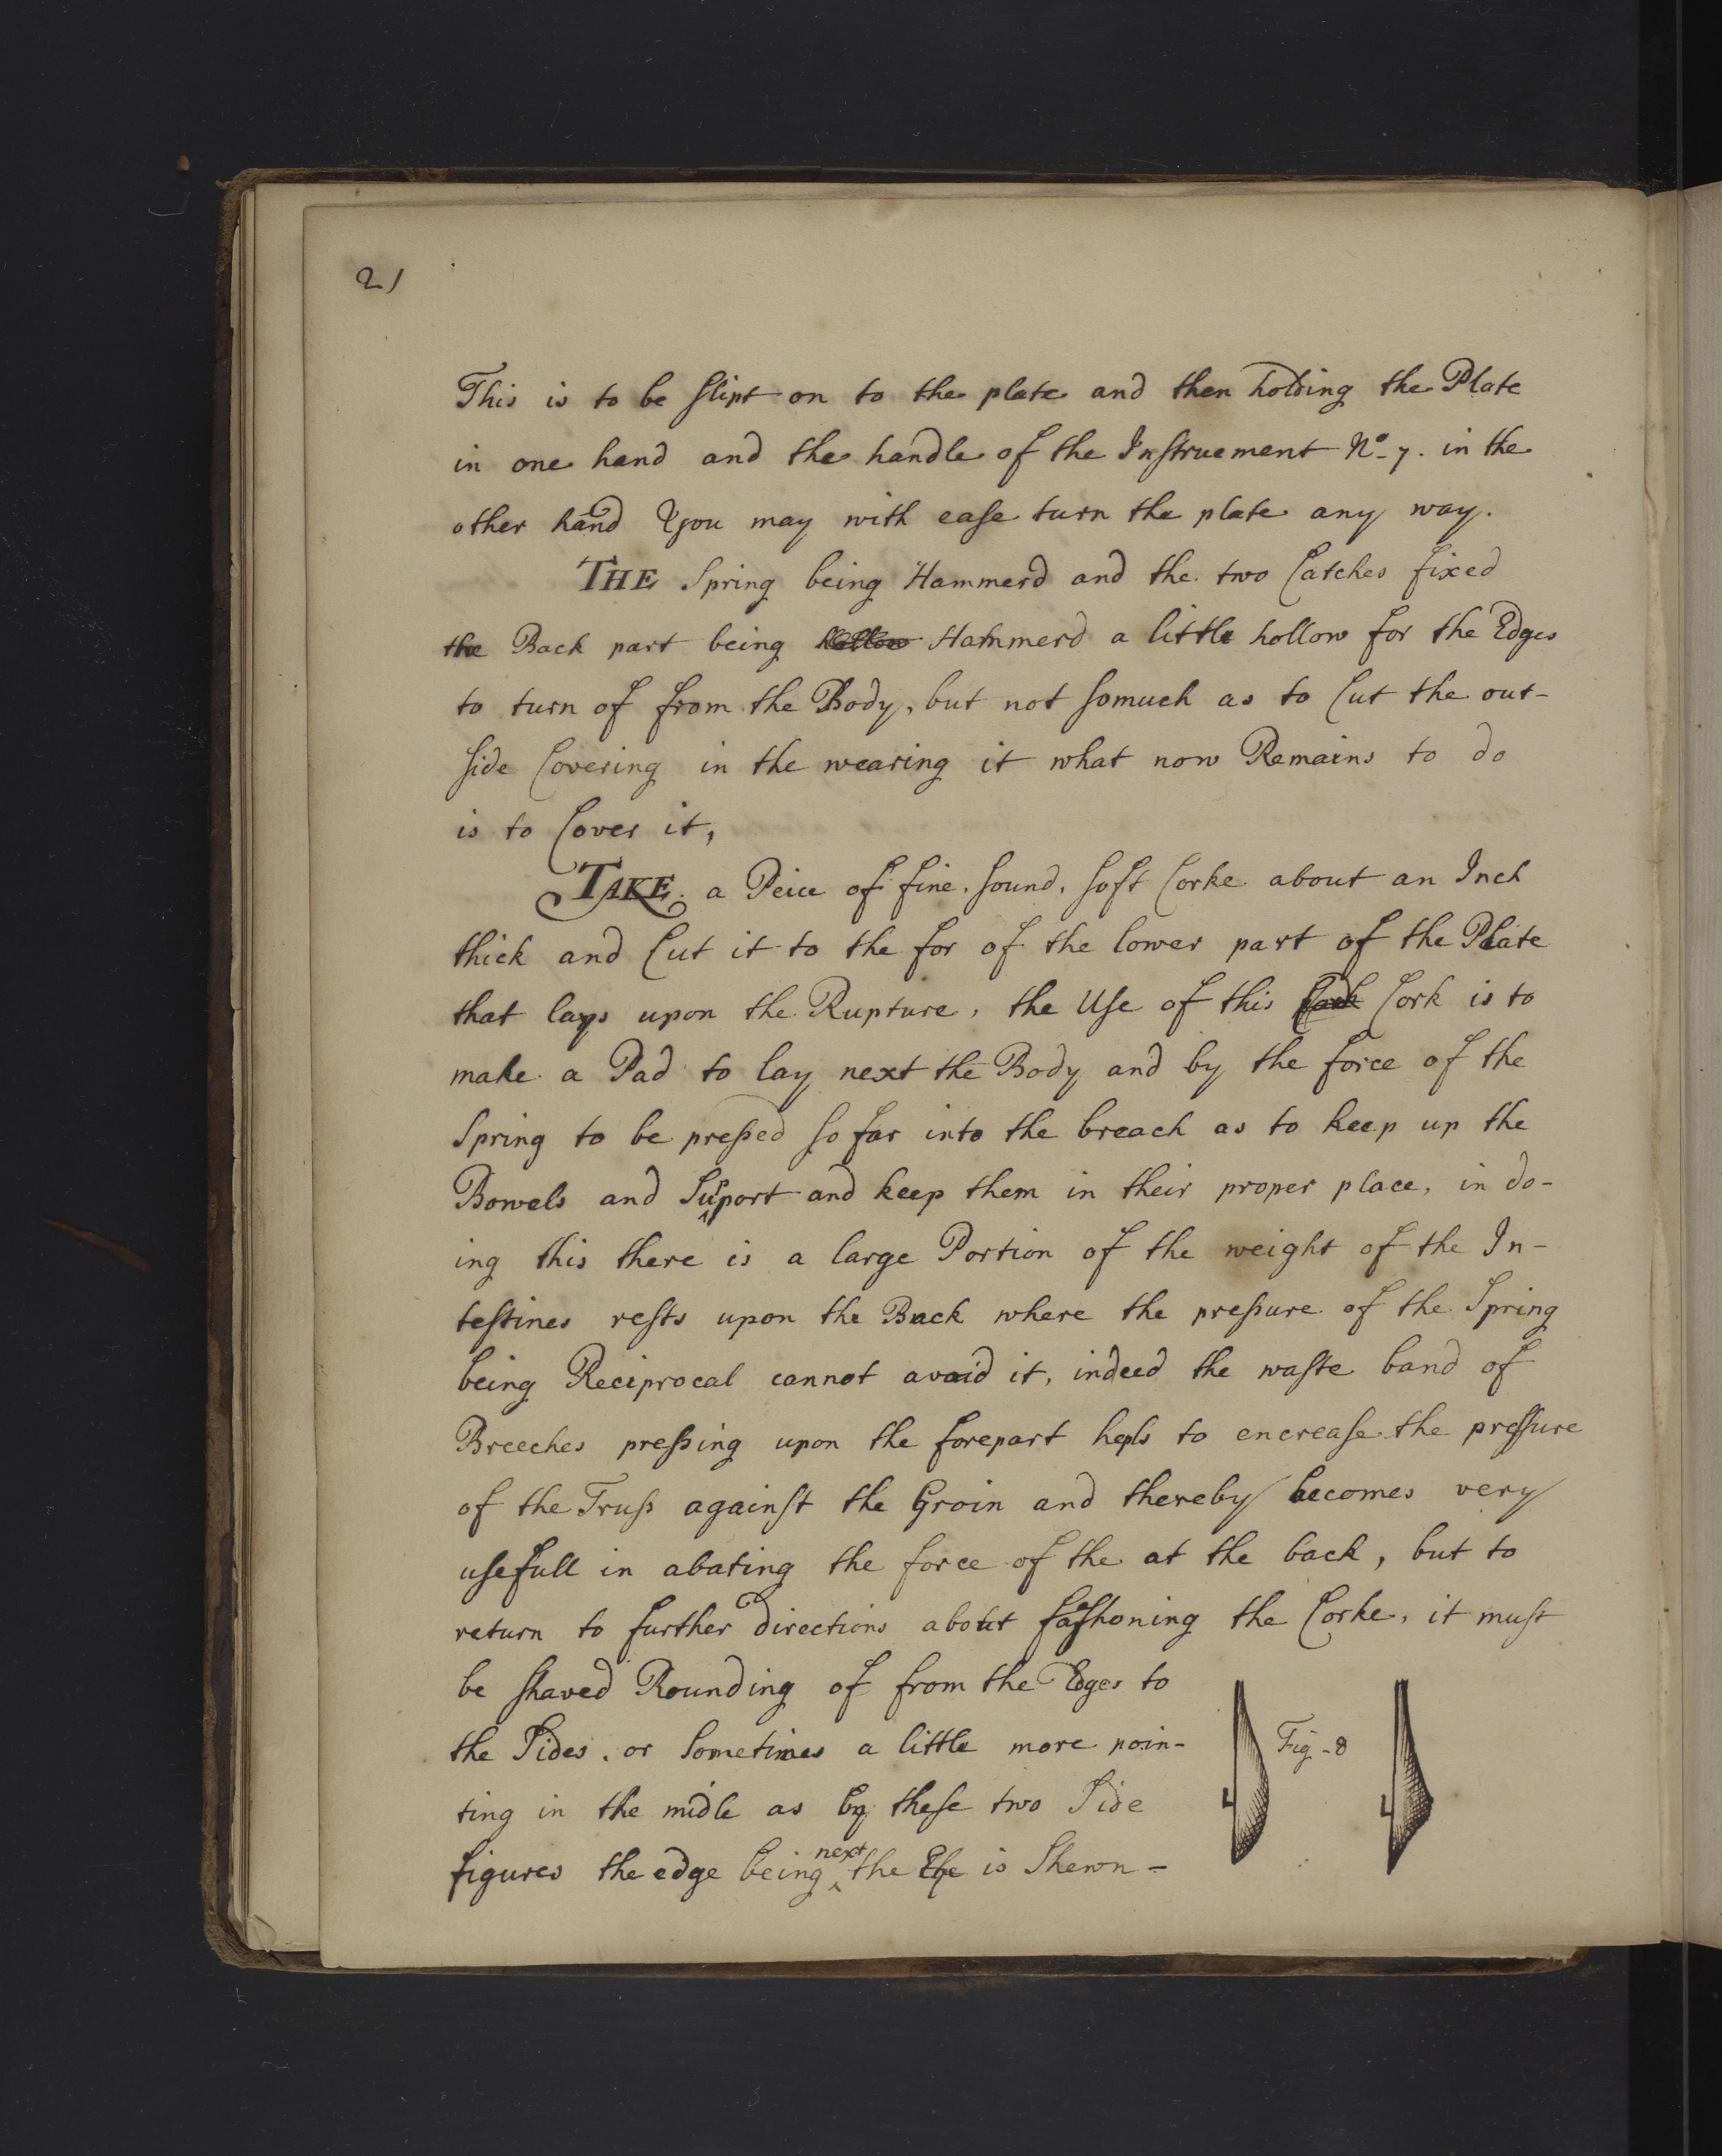 21
This is to be ſlipt on to the plate and then holding the Plate
in one hand and the handle of the Inſtruement No. 7. in the
other hand You may with eaſe turn the plate any way.
THE Spring being Hammerd and the two Catches fixed
the Back part being hollow Hammerd a little hollow for the Edges
to turn of from the Body, but not ſomuch as to Cut the out-
ſide Covering in the wearing it what now Remains to do
is to Cover it,
TAKE a Peice of fine, ſound, ſoft Corke about an Inch
thick and Cut it to the for of the lower part of the Plate
that lays upon the Rupture, the Uſe of this Cork is to
make a Pad to lay next the Body and by the force of the
Spring to be preſsed ſo far into the breach as to keep up the
Bowels and Support and keep them in their proper place, in do-
ing this there is a large Portion of the weight of the In-
teſtines reſts upon the Back where the preſsure of the Spring
being Reciprocal cannot avoid it, indeed the waſte band of
Breeches preſsing upon the forepart hepls to encreaſe the preſſure
of the Truſs againſt the Groin and thereby becomes very
uſefull in abating the force of the at the back, but to
return to further directions about faſhoning the Corke, it muſt
be ſhaved Rounding of from the Edges to
the Sides, or Sometimes a little more poin-
ting in the midle as by theſe two Side
figures the edge being next the Eye is Shewn-
Fig-8